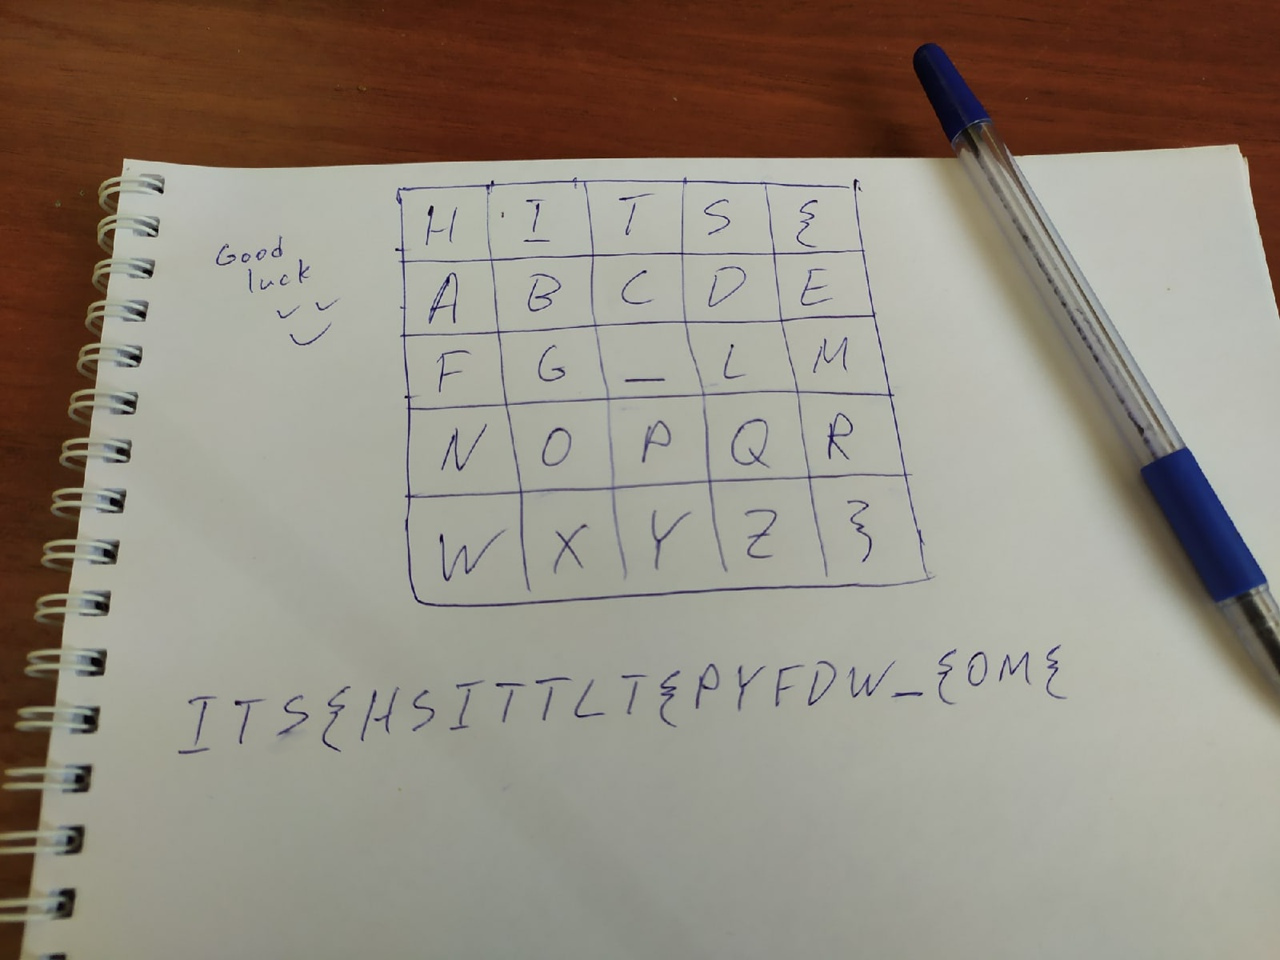 Good
luck
H I T S {
A B C D E
F G _ L M
N O P Q R
W X Y Z }
ITS{HSITTLT{PYFDW_{OM{